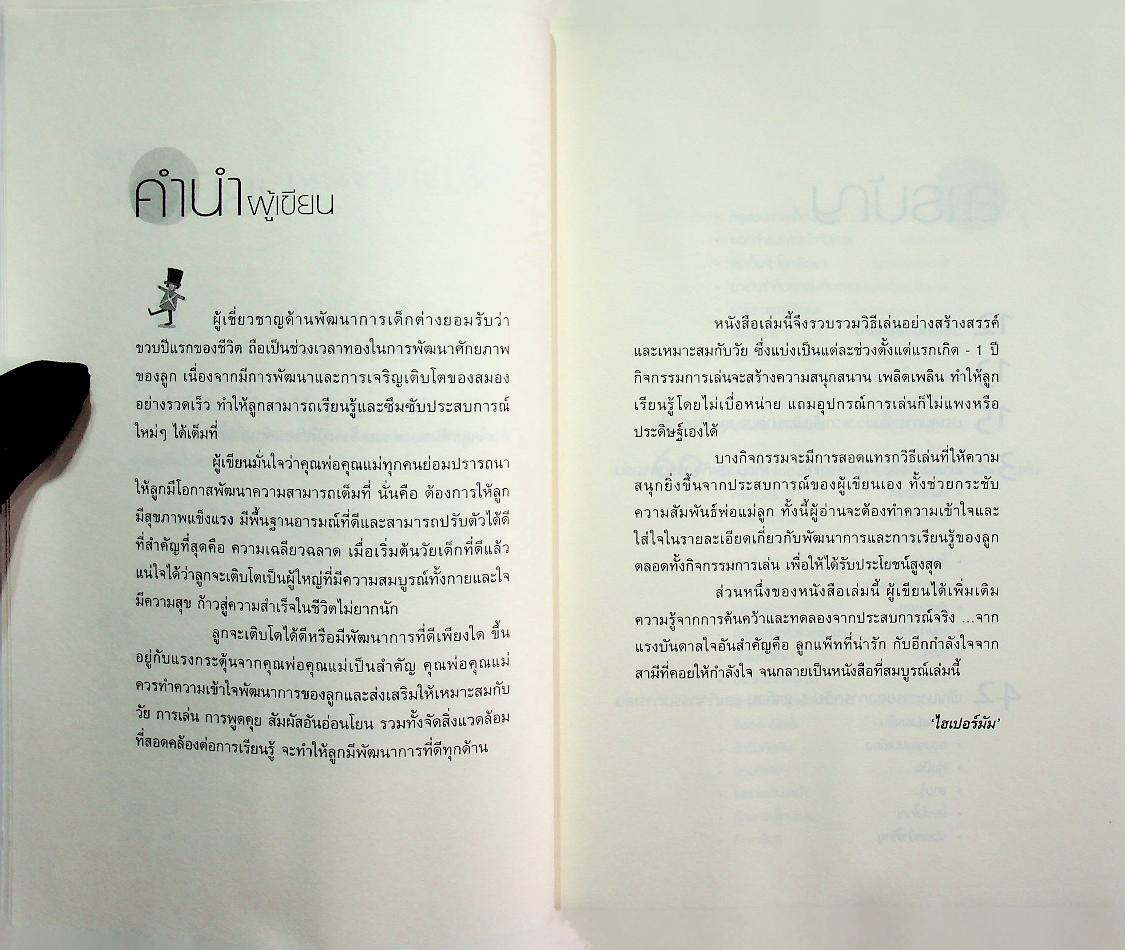 คำนำผู้เขียน
ผู้เชี่ยวชาญด้านพัฒนาการเด็กต่างยอมรับว่า
ขวบปีแรกของชีวิต ถือเป็นช่วงเวลาทองในการพัฒนาศักยภาพ
ของลูก เนื่องจากมีการพัฒนาและการเจริญเติบโตของสมอง
อย่างรวดเร็ว ทำให้ลูกสามารถเรียนรู้และซึมซับประสบการณ์
ใหม่ๆ ได้เต็มที่
ผู้เขียนมั่นใจว่าคุณพ่อคุณแม่ทุกคนย่อมปรารถนา
ให้ลูกมีโอกาสพัฒนาความสามารถเต็มที่ นั่นคือ ต้องการให้ลูก
มีสุขภาพแข็งแรง มีพื้นฐานอารมณ์ที่ดีและสามารถปรับตัวได้ดี
ที่สำคัญที่สุดคือ ความเฉลียวฉลาด เมื่อเริ่มต้นวัยเด็กที่ดีแล้ว
แน่ใจได้ว่าลูกจะเติบโตเป็นผู้ใหญ่ที่มีความสมบูรณ์ทั้งกายและใจ
มีความสุข ก้าวสู่ความสำเร็จในชีวิตไม่ยากนัก
ลูกจะเติบโตได้ดีหรือมีพัฒนาการที่ดีเพียงใด ขึ้น
อยู่กับแรงกระตุ้นจากคุณพ่อคุณแม่เป็นสำคัญ คุณพ่อคุณแม่
ควรทำความเข้าใจพัฒนาการของลูกและส่งเสริมให้เหมาะสมกับ
วัย การเล่น การพูดคุย สัมผัสอันอ่อนโยน รวมทั้งจัดสิ่งแวดล้อม
ที่สอดคล้องต่อการเรียนรู้ จะทำให้ลูกมีพัฒนาการที่ดีทุกด้าน
หนังสือเล่มนี้จึงรวบรวมวิธีเล่นอย่างสร้างสรรค์
และเหมาะสมกับวัย ซึ่งแบ่งเป็นแต่ละช่วงตั้งแต่แรกเกิด - 1 ปี
กิจกรรมการเล่นจะสร้างความสนุกสนาน เพลิดเพลิน ทำให้ลูก
เรียนรู้โดยไม่เบื่อหน่าย แถมอุปกรณ์การเล่นก็ไม่แพงหรือ
ประดิษฐ์เองได้
บางกิจกรรมจะมีการสอดแทรกวิธีเล่นที่ให้ความ
สนุกยิ่งขึ้นจากประสบการณ์ของผู้เขียนเอง ทั้งช่วยกระชับ
ความสัมพันธ์พ่อแม่ลูก ทั้งนี้ผู้อ่านจะต้องทำความเข้าใจและ
ใส่ใจในรายละเอียดเกี่ยวกับพัฒนาการและการเรียนรู้ของลูก
ตลอดทั้งกิจกรรมการเล่น เพื่อให้ได้รับประโยชน์สูงสุด
ส่วนหนึ่งของหนังสือเล่มนี้ ผู้เขียนได้เพิ่มเติม
ความรู้จากการค้นคว้าและทดลองจากประสบการณ์จริง ...จาก
แรงบันดาลใจอันสำคัญคือ ลูกแพ็ทที่น่ารัก กับอีกกำลังใจจาก
สามีที่คอยให้กำลังใจ จนกลายเป็นหนังสือที่สมบูรณ์เล่มนี้
'ไฮเปอร์มัม'